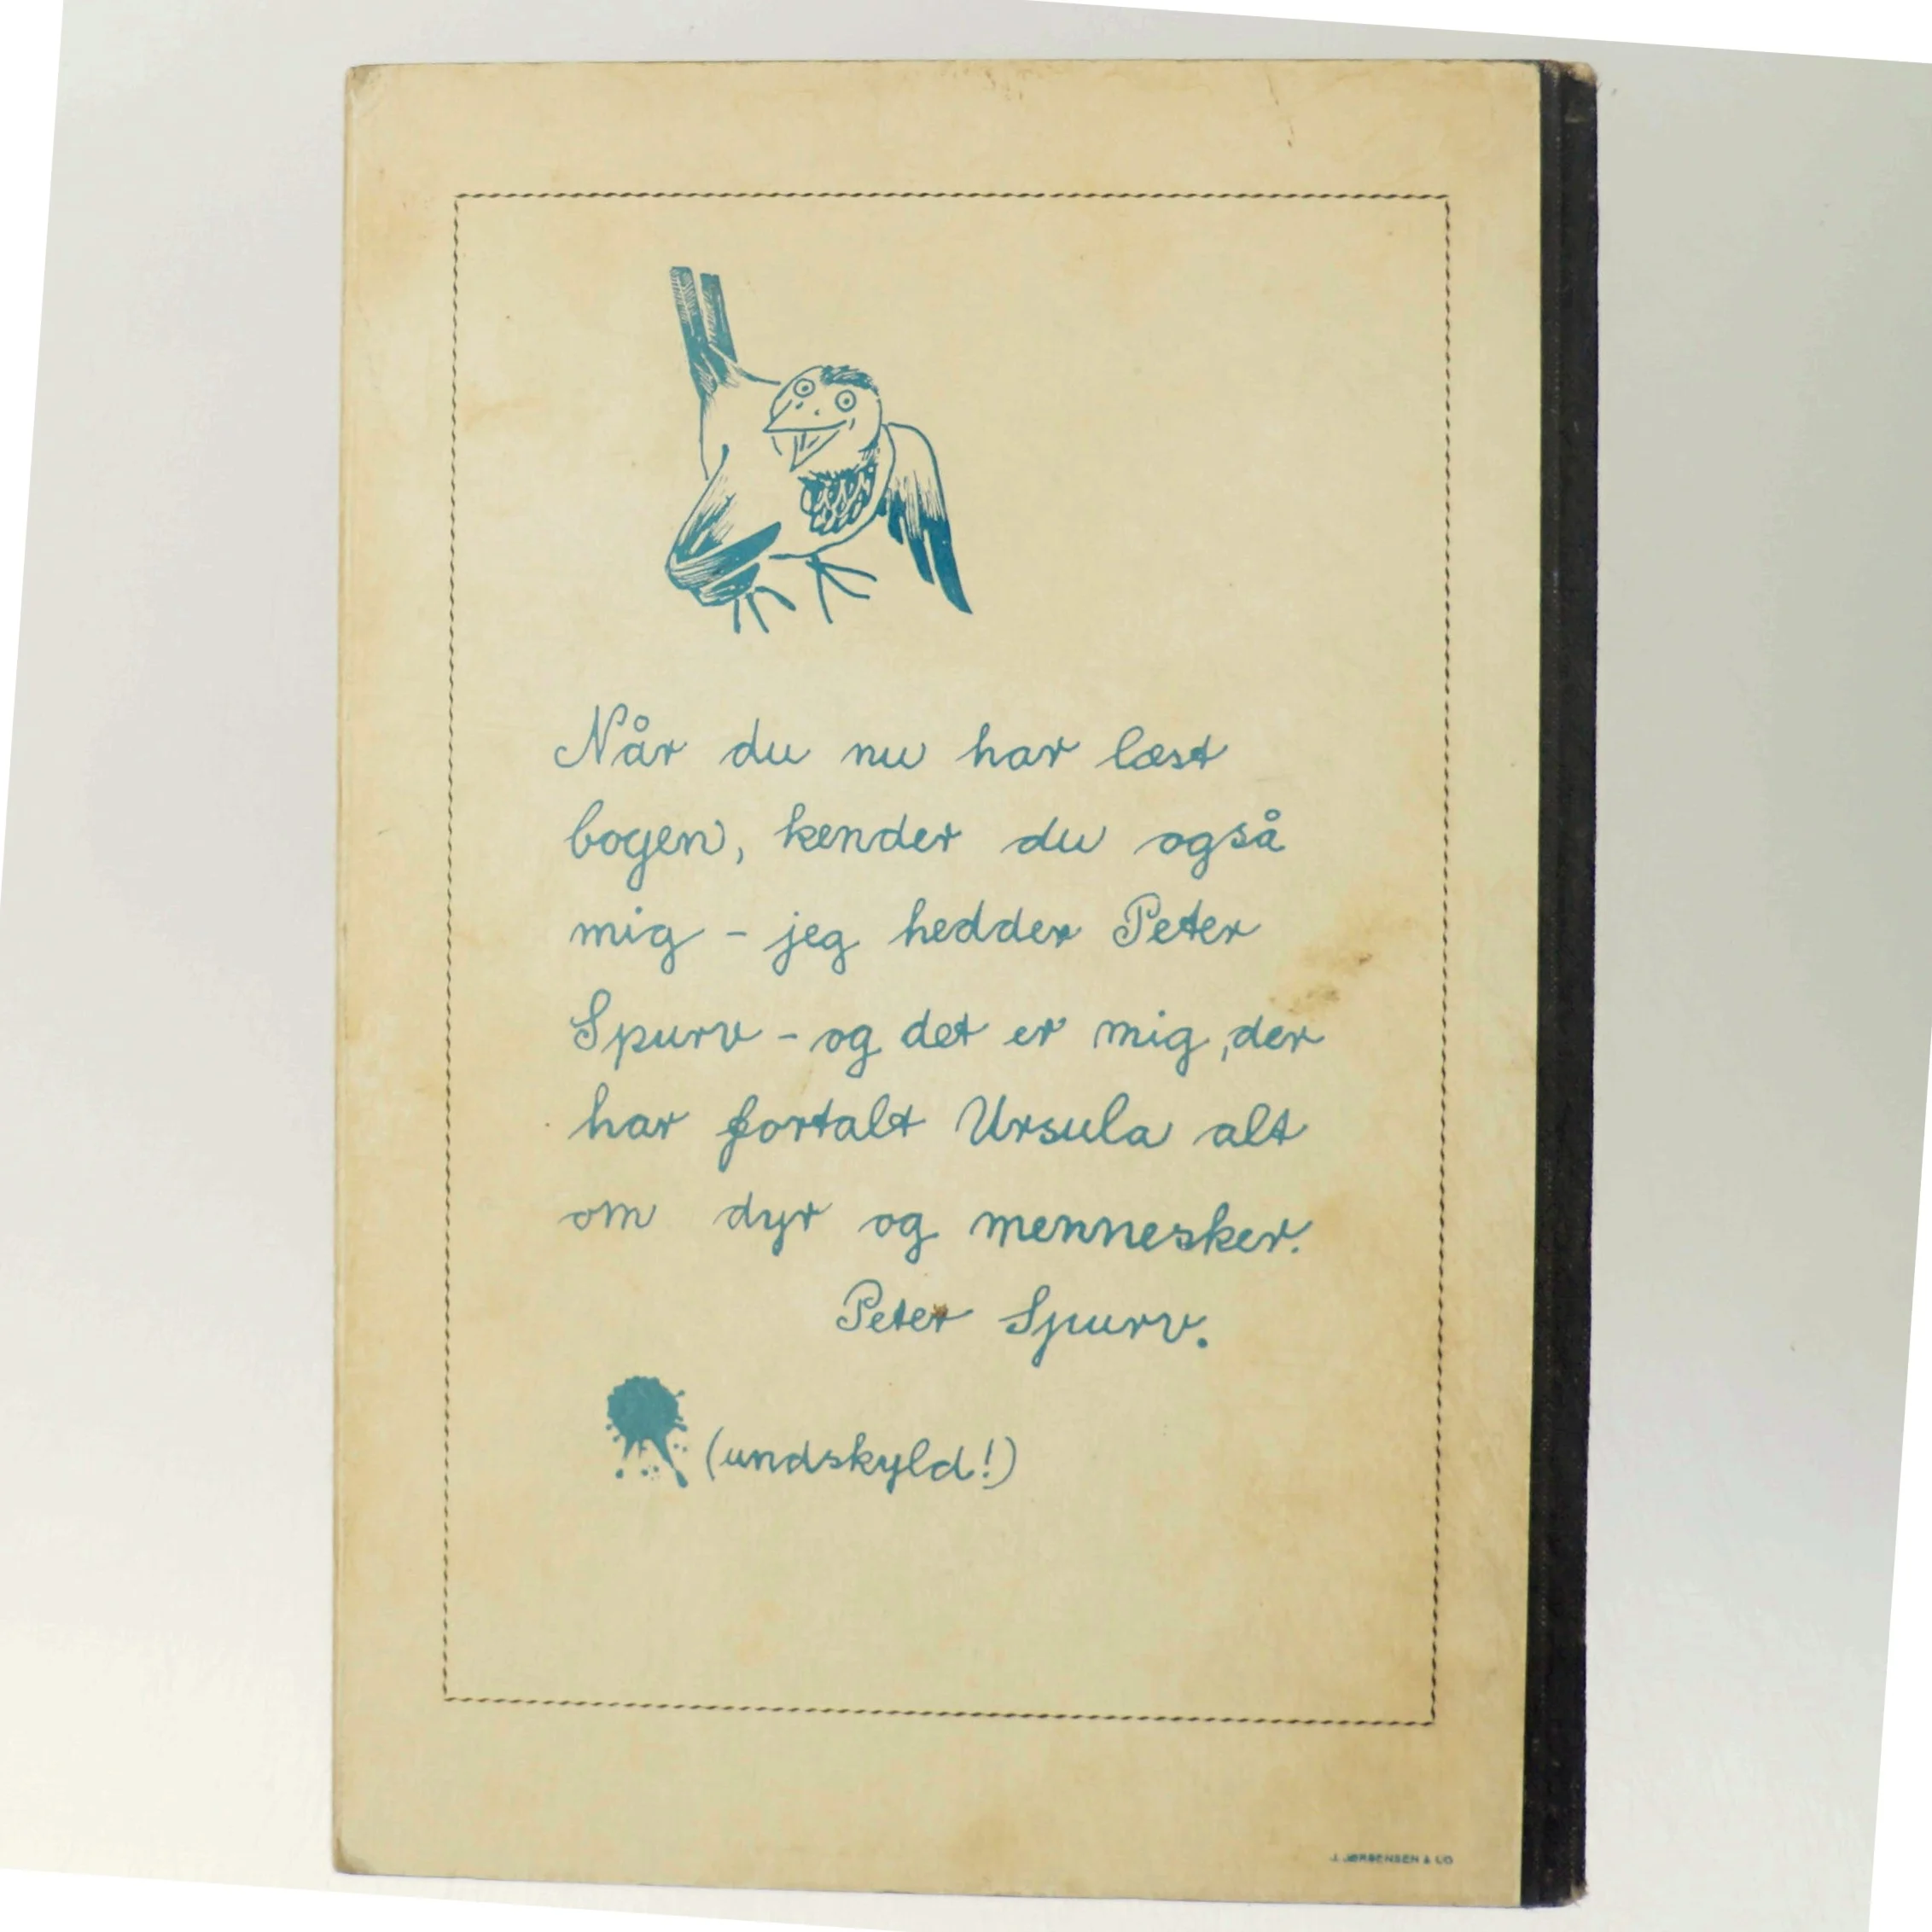 Når du nu har læst
bogen, kender du også
mig - jeg hedder Peter
Spurv - og det er mig, der
har fortalt Ursula alt
om dyr og mennesker.
Peter Spurv.
(undskyld!)
J. JØRGENSEN & CO